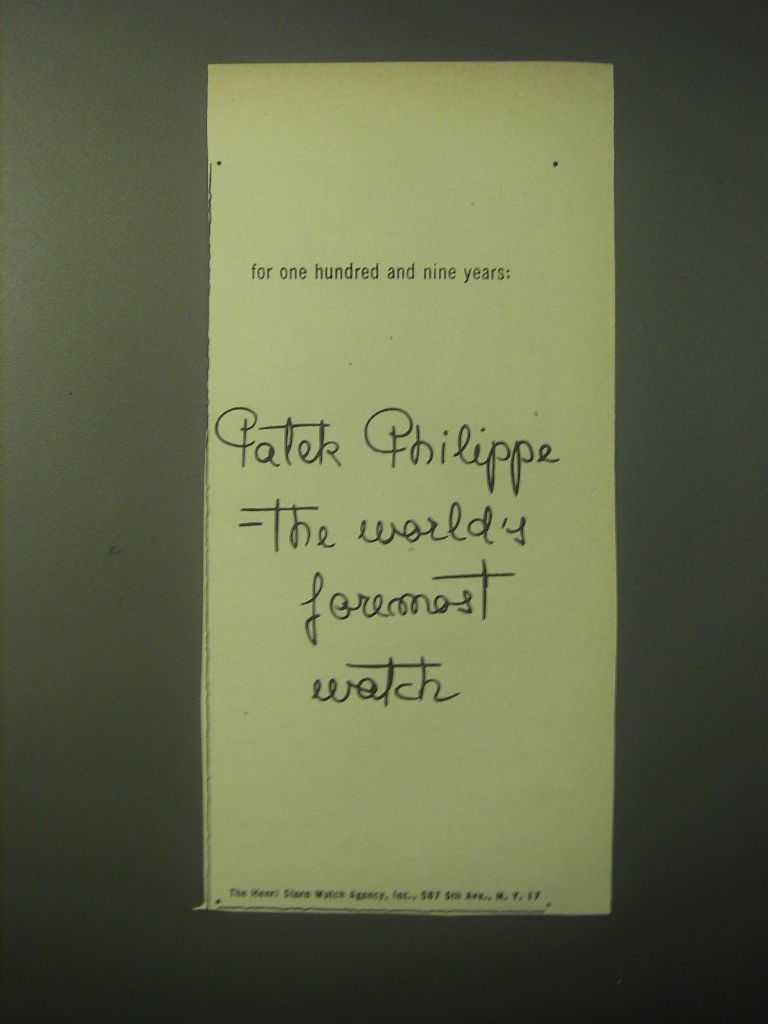 for one hundred and nine years:
Patek Philippe
-the world's
foremost
watch
The Henri Stern Watch Agency, Inc., 587 5th Ave., N. Y. 17